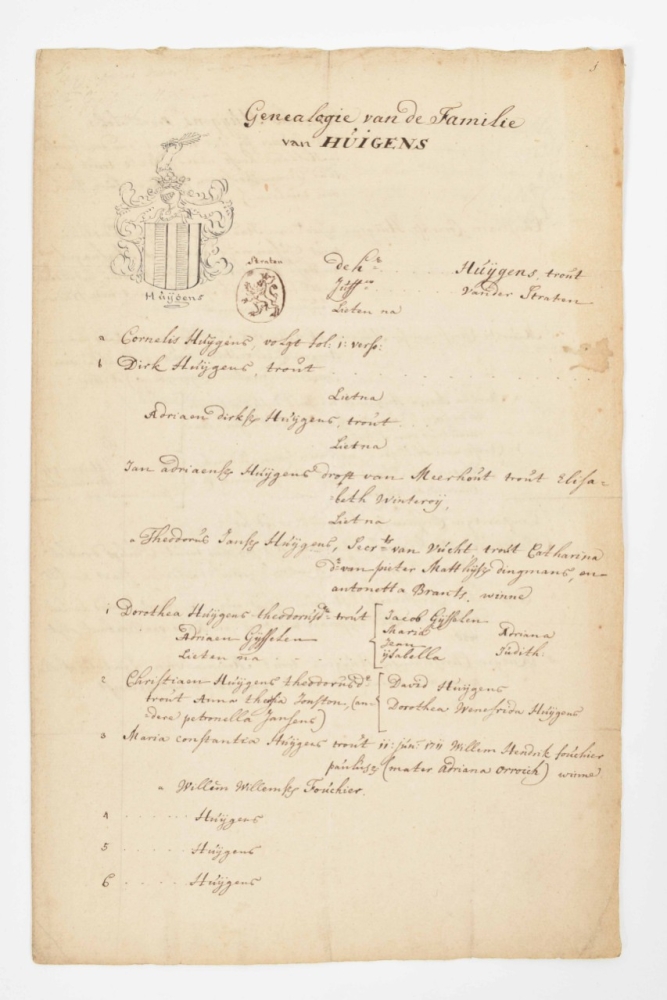 Genealogie van de Familie
van HÜIGENS
Huijgens
Straten
de hr. . . . . . . Huijgens, troüt
Juffre. . . . . . Vander Straten
Lieten na
a Cornelis Huijgens, volgt fol: 1: verso:
b Dirk Huijgens, troüt . . . . . . . . .
Liet na
Adriaen dirksz Huijgens, troüt
Liet na
Jan adriaensz Huijgens drost van Meerhoüt troüt Elisa=
=beth Winteroij,
Liet na
a Theodorüs Jansz Huijgens, Secrts van Vücht troüt Catharina
Dr van pieter Matthijsz dingmans, en
antonetta Brants, winne
1 Dorothea Huijgens theodorüsdr troüt
Adriaen Gijsselen
Lieten na . . . . .
Jacob Gijsselen
Maria Adriana
Jean Judith
ijsabella
2 Christiaen Huijgens theodorüs
troüt Anna Jonston, (an=
dere petronella Jansens)
David Huijgens
Dorothea Wenefrida Huijgens
3 Maria constantia Huijgens troüt 11: jün: 1711 Willem Hendrik foüchier
paülüsz (mater adriana orroich) winne
a Willem Willemsz Foüchier.
4 . . . . . . Huijgens
5 . . . . . . Huijgens
6 . . . . . . Huijgens